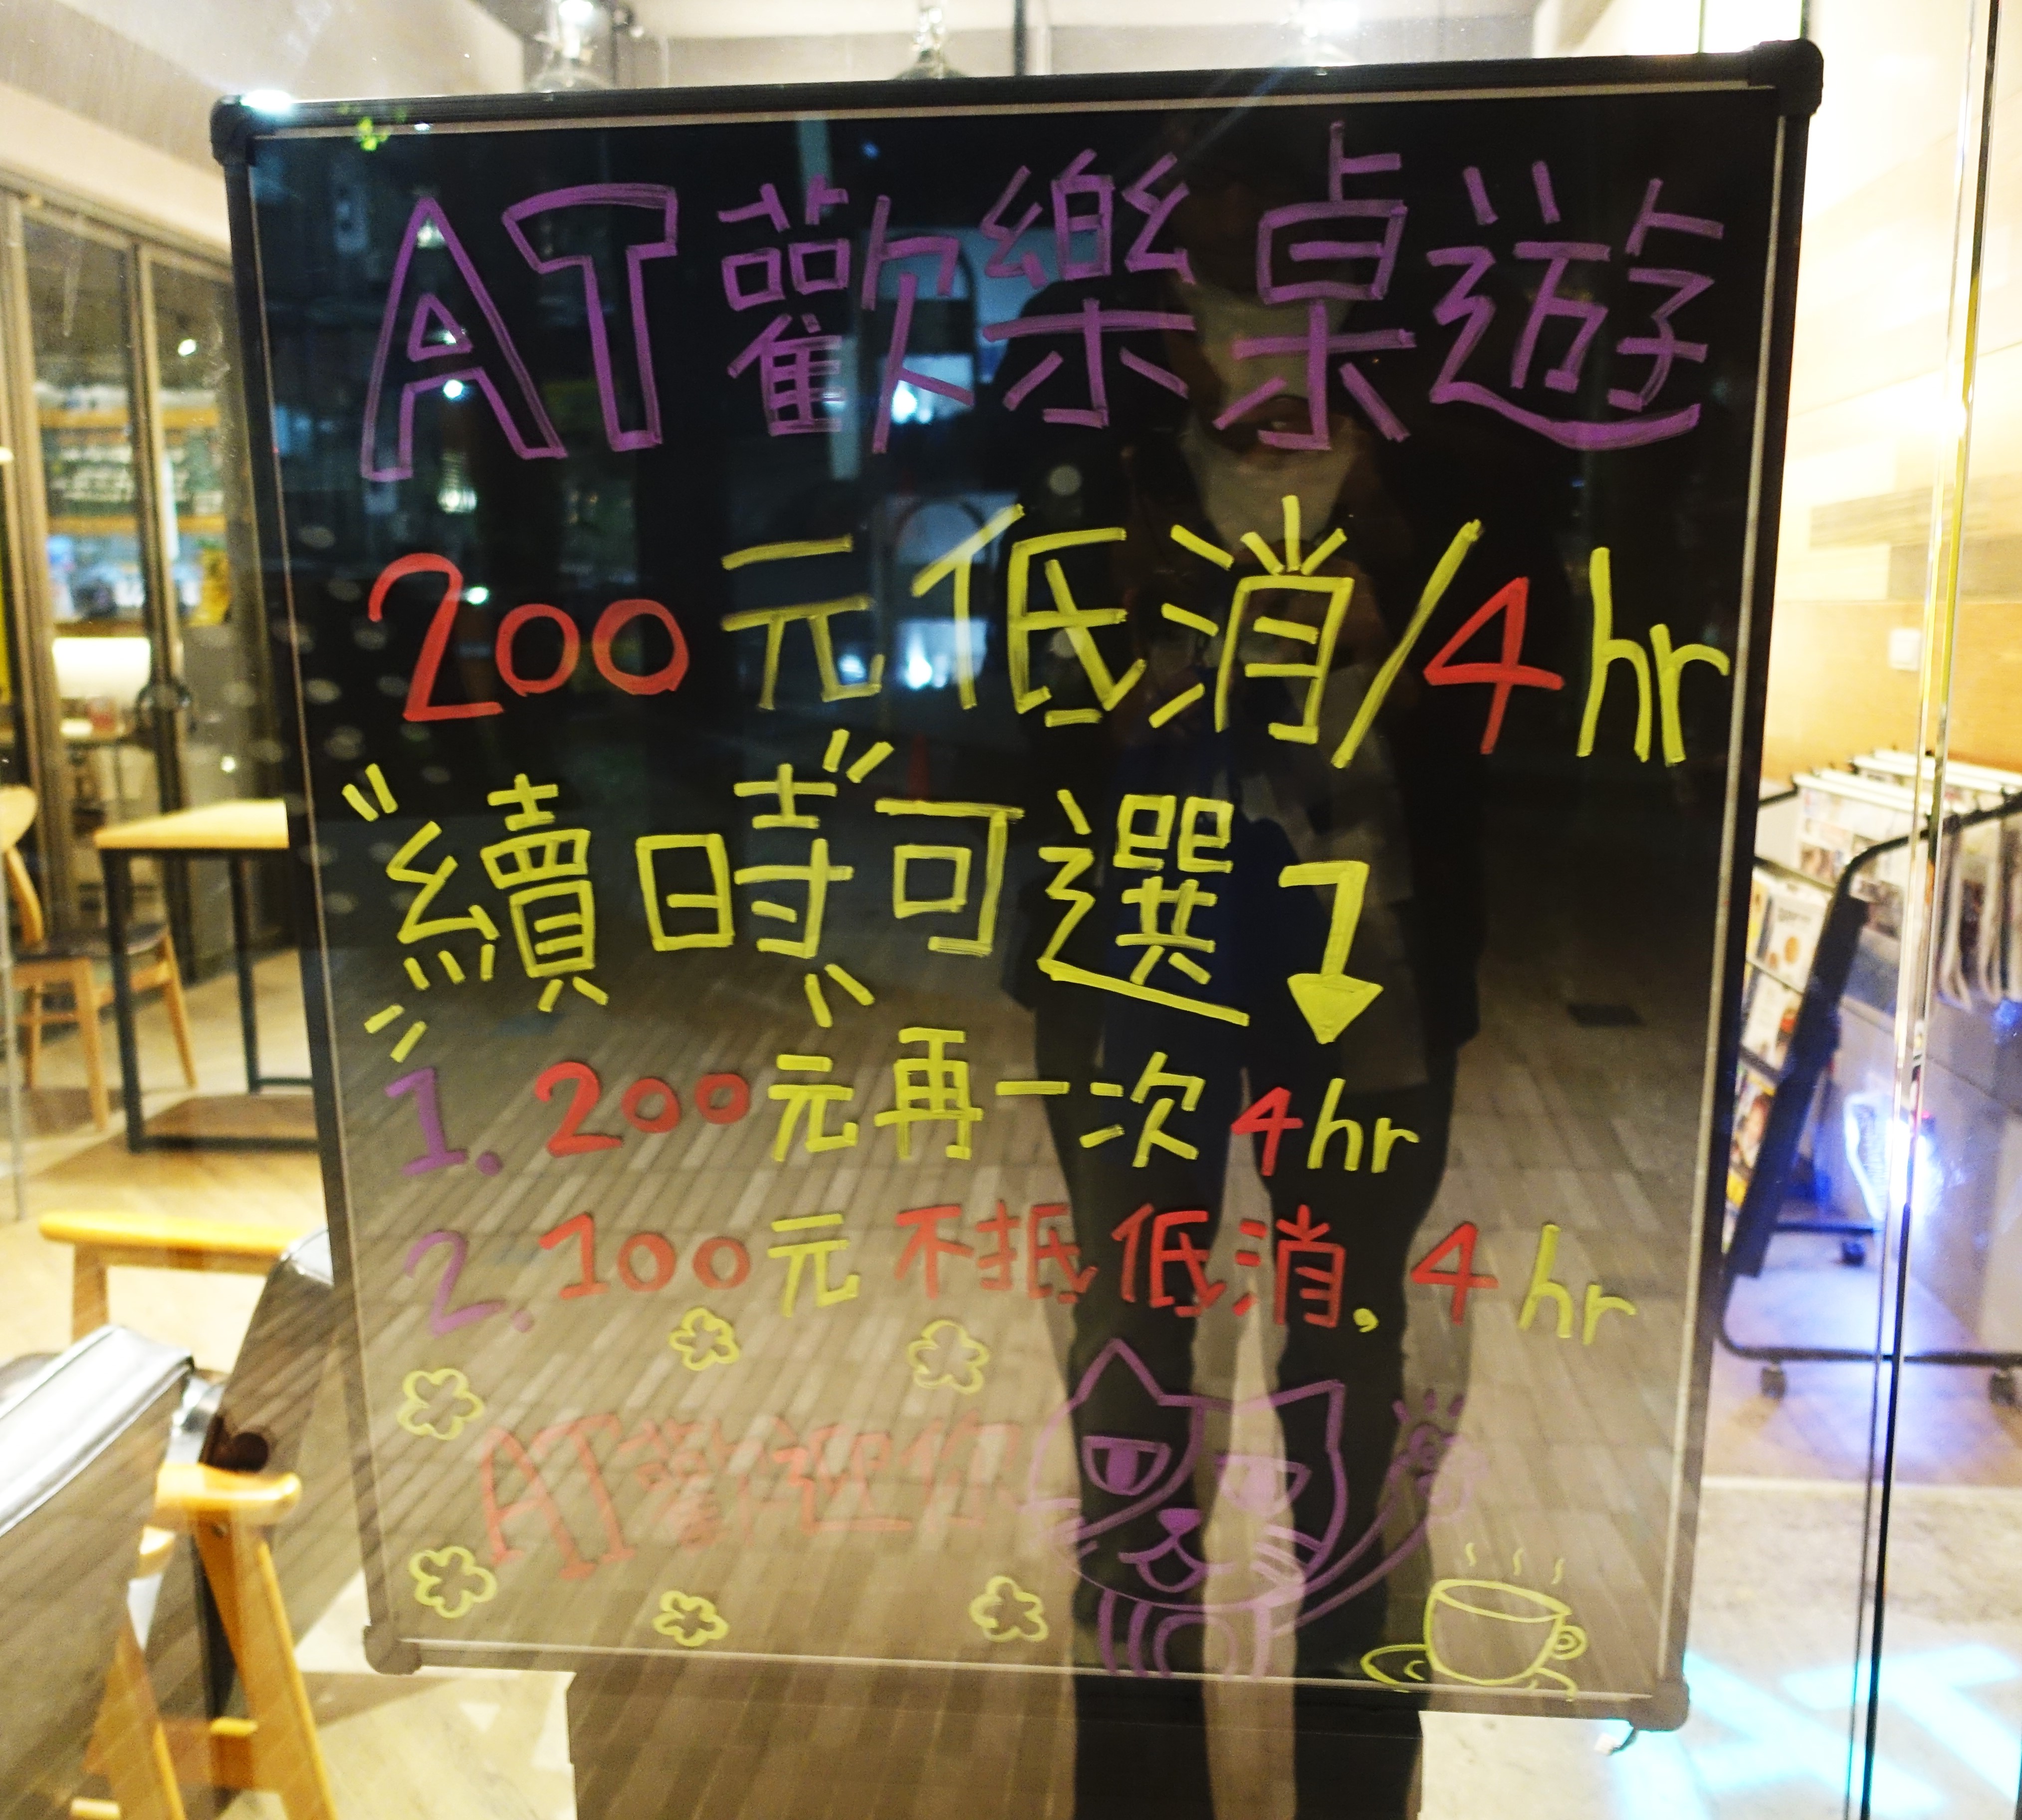 AT歡樂桌遊
200元低消/4hr
續時可選
1. 200元再一次4hr
2. 100元不抵低消, 4hr
AT歡迎你